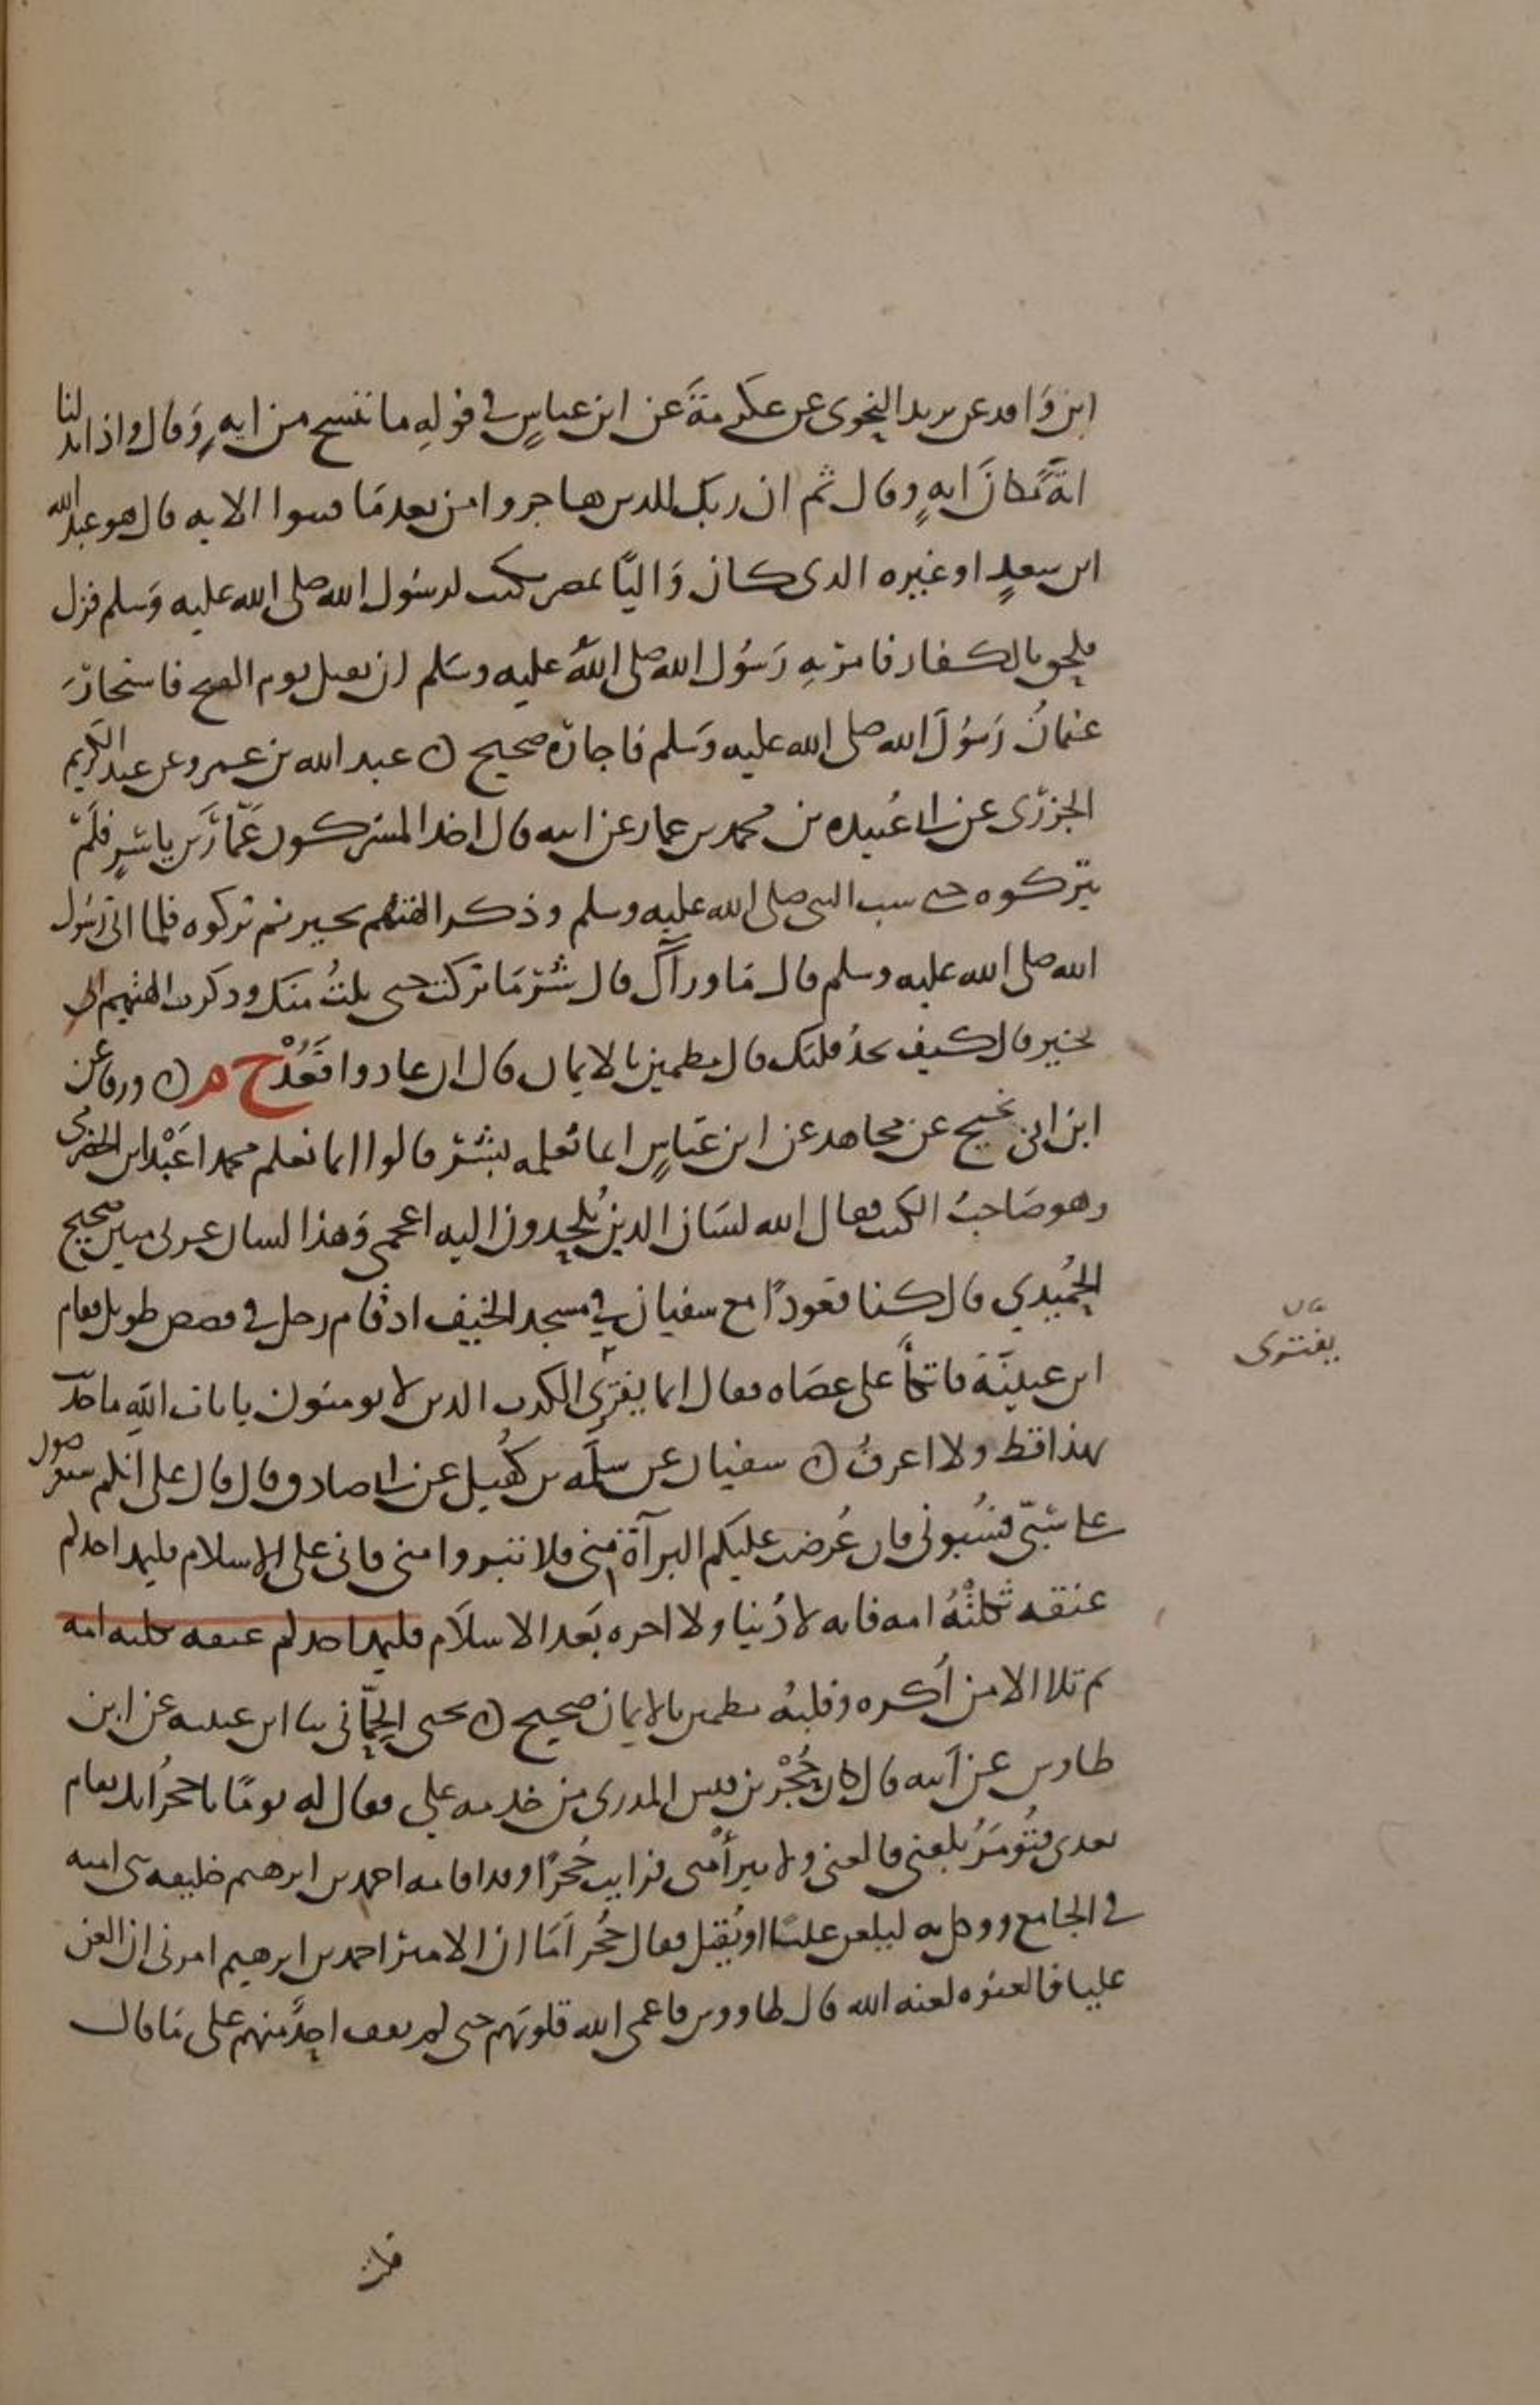 ابن واقد عن يزيد النحوي عن عكرمة عن ابن عباس في قوله ما ننسخ من اية وقال واذا بدلنا
اية مكان اية وقال ثم ان ربك للذين هاجروا من بعد ما فتنوا الاية قال هو عبد الله
ابن سعد او غيره الذي كان واليا بمصر يكتب لرسول الله صلى الله عليه وسلم فزل
فلحق بالكفار فامر به رسول الله صلى الله عليه وسلم ان يقتل يوم الفتح فاستجار
عثمان رسول الله صلى الله عليه وسلم فاجاره صحيح ن عبد الله بن عمرو عن عبد الكريم
الجزري عن ابي عبيده بن محمد بن عمار عن ابيه قال اخذ المشركون عمار بن ياسر فلم
يتركوه حتى سب النبي صلى الله عليه وسلم وذكر الهتهم بخير ثم تركوه فلما اتى رسول
الله صلى الله عليه وسلم قال ما وراك قال شر ما تركت حتى نلت منك وذكرت الهتهم
بخير قال كيف تجد قلبك قال مطمئن بالايمان قال ان عادوا فعد خ م ن ورقا عن
ابن ابي نجيح عن مجاهد عن ابن عباس انما يعلمه بشر قالوا انما يعلم محمدا عبد ابن الحضرمي
وهو صاحب الكتب فقال الله لسان الذين يلحدون اليه اعجمي وهذا لسان عربي مبين صحيح
الحميدي قال كنا قعودا مع سفيان في مسجد الخيف اذ قام رجل في قصص طويل فقام
ابن عيينة فاتكأ على عصاه فقال انما يفتري الكذب الذين لا يومنون بايات الله ما حدث
بهذا قط ولا اعرف ن سفيان عن سلمه بن كهيل عن ابي صادق قال قال علي انكم ستعرضون
على سبي فسبوني فان عرضت عليكم البرآة مني فلا تتبروا مني فاني على الاسلام فليمد احدكم
عنقه ثكلته امه فانه لا دنيا ولا اخره بعد الاسلام فليمد احدكم عنقه ثكلته امه
ثم تلا الا من أكره وقلبه مطمئن بالايمان صحيح ن يحيى الحماني ثنا ابن عيينه عن ابن
طاوس عن أبيه قال كان حجر بن قيس المدري من خدمه علي فقال له يوما يا حجر انك تقام
بعدي فتؤمر بلعني فالعني ولا تبرأ مني فرايت حجرا وقد اقامه احمد بن ابرهيم خليفه بني اميه
في الجامع ووكل به ليلعن عليا او يقتل فقال حجر أما ان الامير احمد بن ابرهيم امرني ان العن
عليا فالعنوه لعنه الله قال طاووس فاعمى الله قلوبهم حتى لم يقف احد منهم على ما قال
يفتري